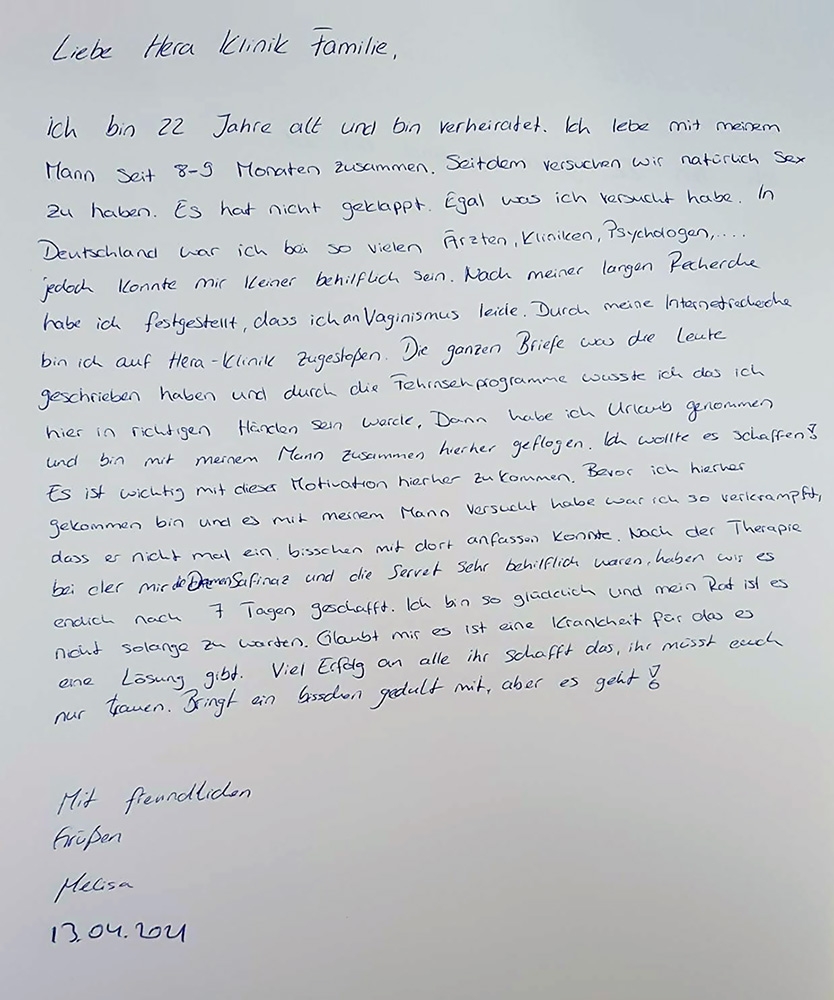 Liebe Hera Klinik Familie,
ich bin 22 Jahre alt und bin verheiratet. Ich lebe mit meinem
Mann seit 8-9 Monaten zusammen. Seitdem versuchen wir natürlich Sex
zu haben. Es hat nicht geklappt. Egal was ich versucht habe. In
Deutschland war ich bei so vielen Ärzten, Kliniken, Psychologen,....
jedoch konnte mir keiner behilflich sein. Nach meiner langen Recherche
habe ich festgestellt, dass ich an Vaginismus leide. Durch meine Internetrecherche
bin ich auf Hera-Klinik zugestoßen. Die ganzen Briefe was die Leute
geschrieben haben und durch die Fehrnsehprogramme wusste ich das ich
hier in richtigen Händen sein werde. Dann habe ich Urlaub genommen
und bin mit meinem Mann zusammen hierher geflogen. Ich wollte es schaffen!
Es ist wichtig mit dieser Motivation hierher zu kommen. Bevor ich hierher
gekommen bin und es mit meinem Mann versucht habe war ich so verkrampft,
dass er nicht mal ein bisschen mit dort anfassen konnte. Nach der Therapie
bei der mir Safinaz und die Servet sehr behilflich waren, haben wir es
endlich nach 7 Tagen geschafft. Ich bin so glücklich und mein Rat ist es
nicht solange zu warten. Glaubt mir es ist eine Krankheit für das es
eine Lösung gibt. Viel Erfolg an alle ihr schafft das, ihr müsst euch
nur trauen. Bringt ein bisschen gedult mit, aber es geht!
Mit freundlichen
Grüßen
Melisa
13.04.2021